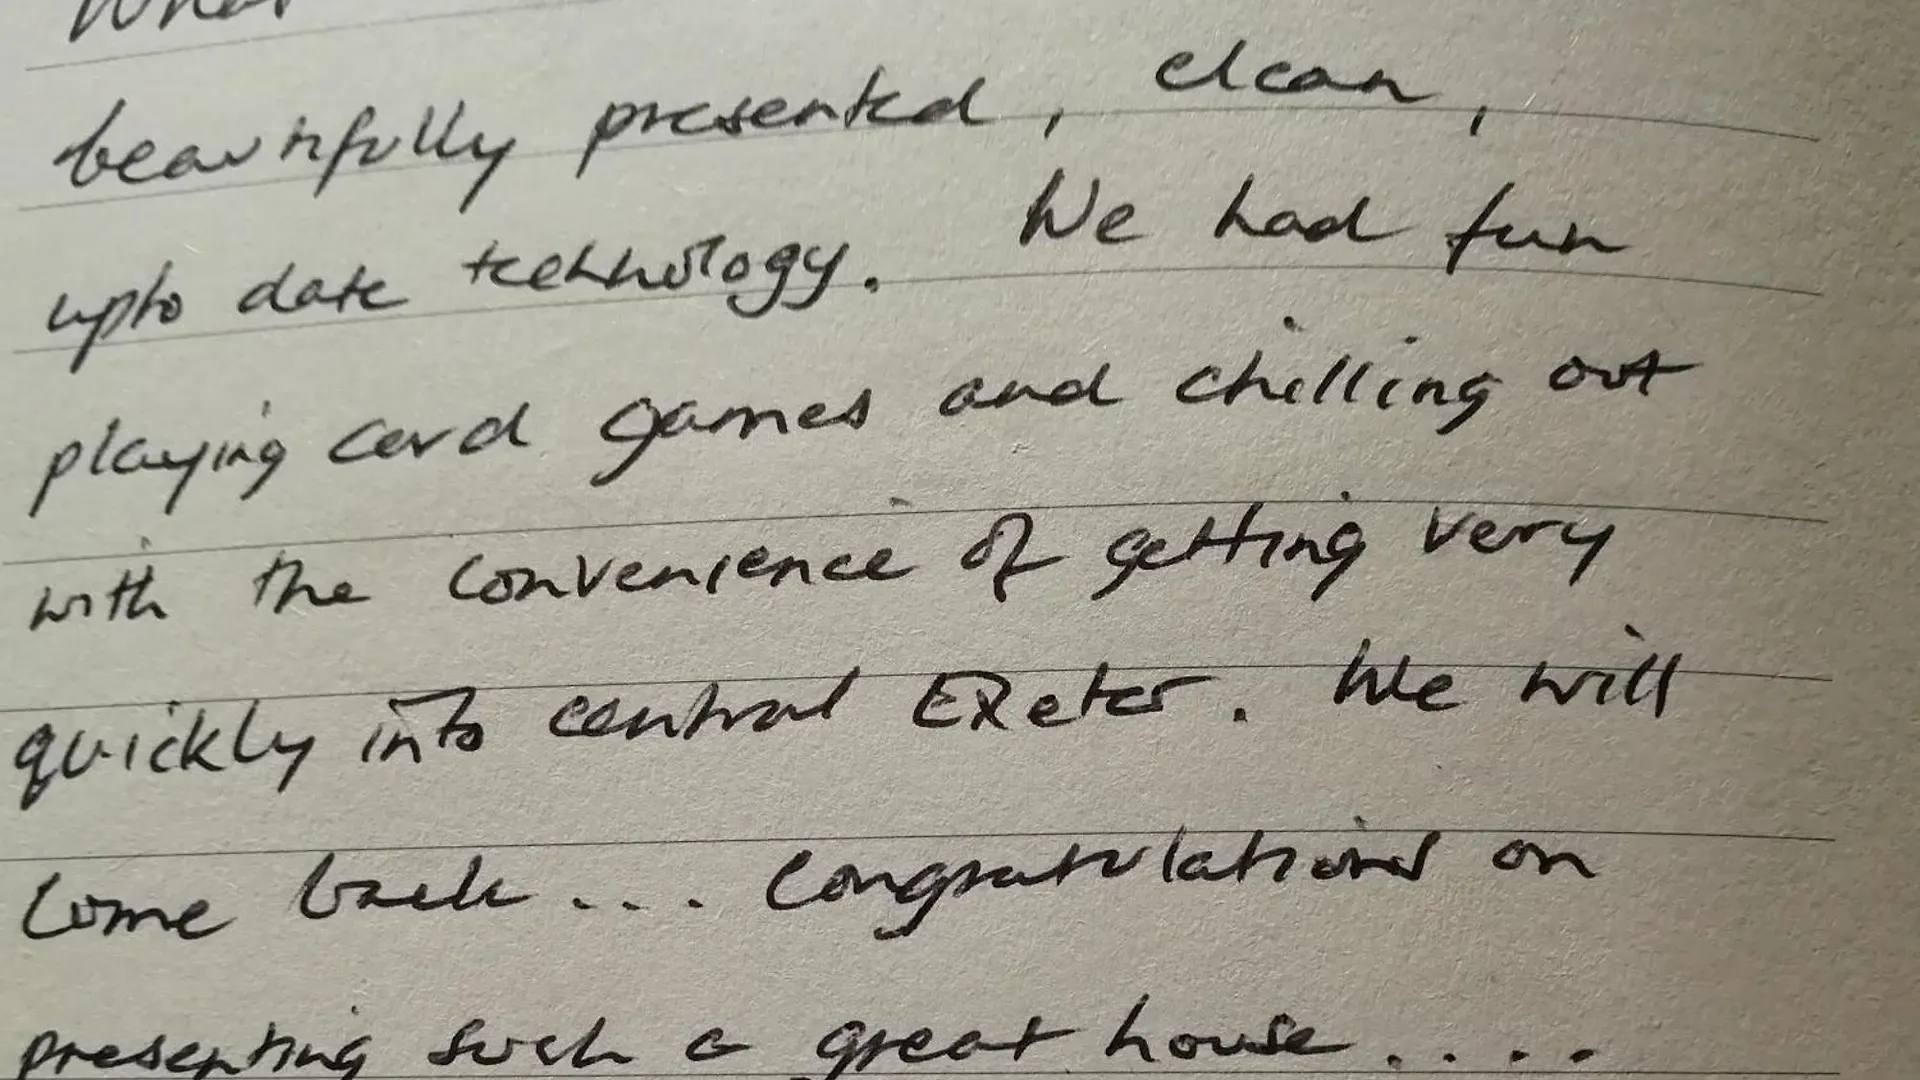 What
beautifully presented, clean,
upto date technology. We had fun
playing card games and chilling out
with the convenience of getting very
quickly into central Exeter. We will
come back... Congratulations on
presenting such a great house....